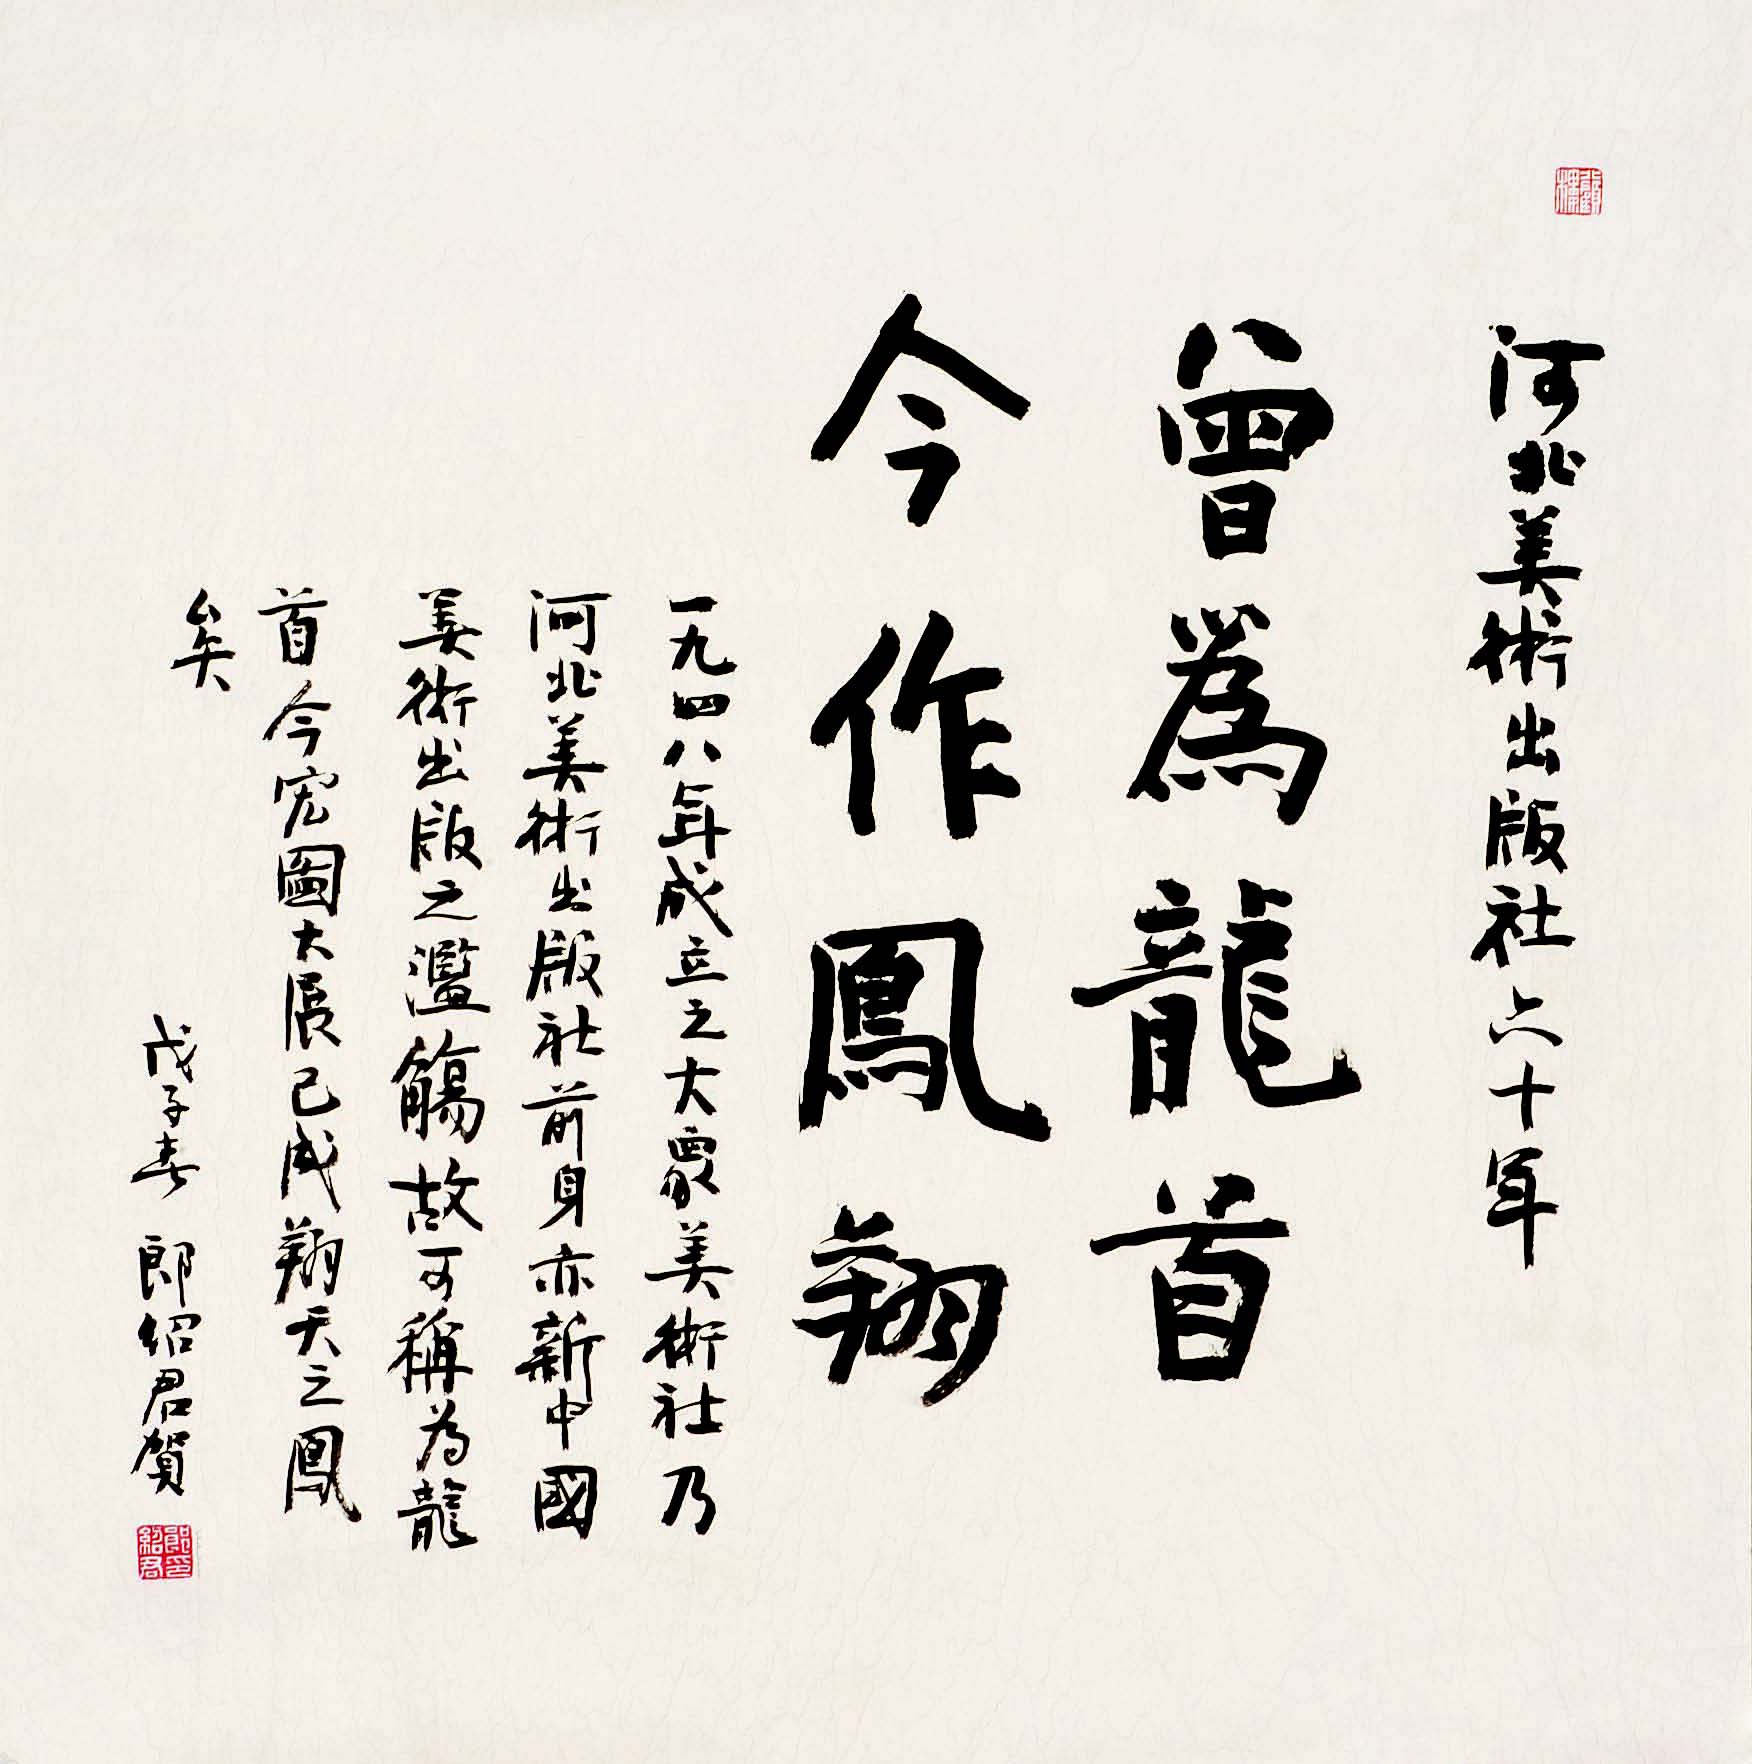 河北美術出版社六十年
曾為龍首
今作鳳翔
一九四八年成立之大眾美術社乃
河北美術出版社前身亦新中國
美術出版之濫觴故可稱为龍
首今宏圖大展已成翔天之鳳
矣
戊子春 郎紹君賀
郎紹君印